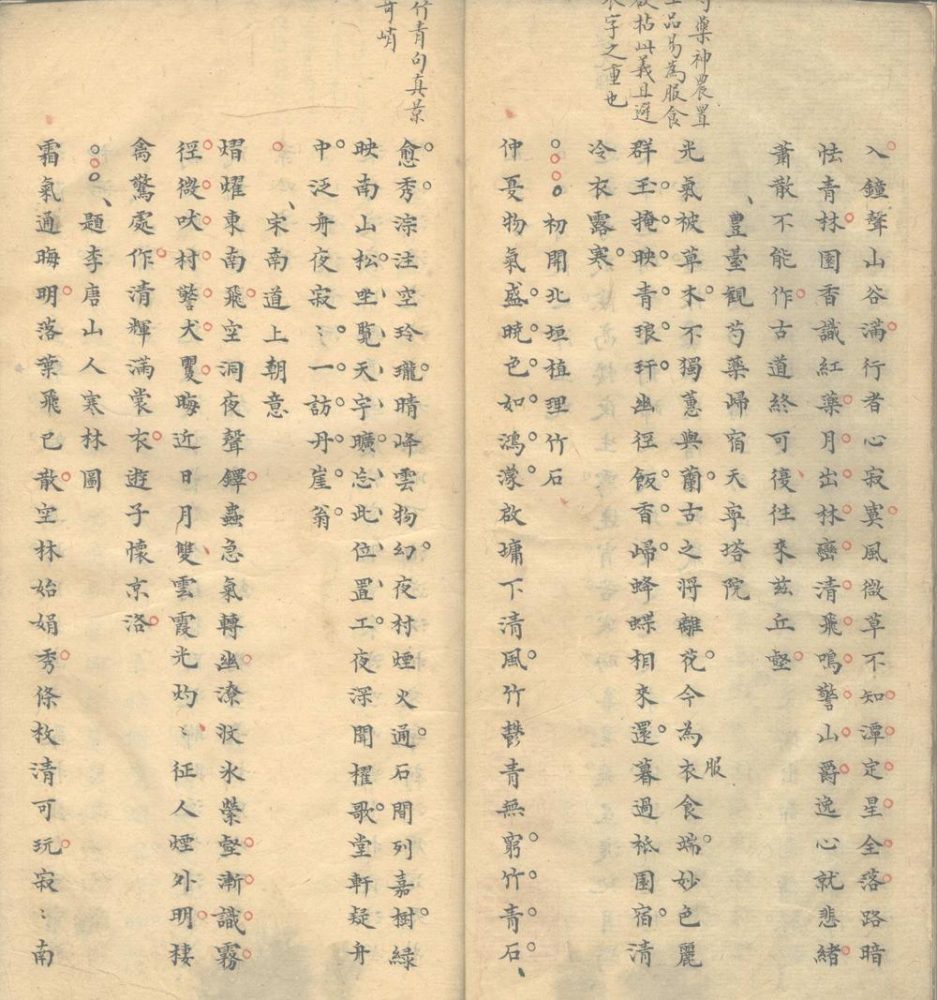 芍藥神農置
上品易為服食
欲拈此義且避
衣字之重也
入鐘聲山谷滿行者心寂寞風微草不知潭定星全落路暗
怯青林園香識紅藥月出林巒清飛鳴警山爵逸心就悲緒
蕭散不能作古道終可復往來茲丘壑
豐臺觀芍藥歸宿天寧塔院
光氣被草木不獨蕙與蘭古之將離花今為衣食端妙色麗
服
群玉掩映青琅玕幽徑飯香歸蜂蝶相來還暮過祇園宿清
冷衣露寒
初開北垣植理竹石
仲夏物氣盛曉色如鴻濛啟墉下清風竹鬱青無窮竹青石
竹青句真景
奇峭
愈秀淙注空玲瓏晴峰雲物幻夜村煙火通石間列嘉樹綠
映南山松坐覽天宇曠忘此位置工夜深聞櫂歌堂軒疑舟
中泛舟夜寂〻一訪丹崖翁
宋南道上朝意
熠燿東南飛空洞夜聲鐸蟲急氣轉幽潦汶氷縈壑漸識霧
徑微吠村警犬矍晦近日月雙雲霞光灼〻征人煙外明棲
禽驚處作清輝滿裳衣遊子懷京洛
題李唐山人寒林圖
霜氣通晦明落葉飛已散空林始娟秀條枚清可玩寂〻南